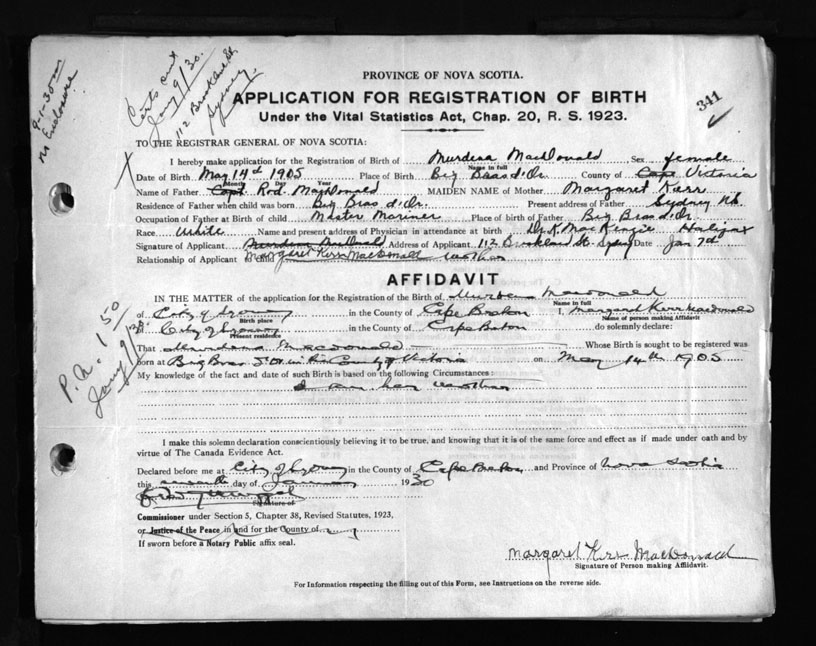 9-1-30
no Enclosure
Certs out
Jany 9/30.
112 Brookland St
Sydney
341
PROVINCE OF NOVA SCOTIA.
APPLICATION FOR REGISTRATION OF BIRTH
Under the Vital Statistics Act, Chap. 20, R. S. 1923.
TO THE REGISTRAR GENERAL OF NOVA SCOTIA:
I hereby make application for the Registration of Birth of Murdena MacDonald Sex female
Name in full
Date of Birth May 14th 1905 Place of Birth Big Bras d'Or County of Cape Victoria
Month Day Year
Name of Father Capt. Rod. MacDonald MAIDEN NAME of Mother Margaret Kerr
Residence of Father when child was born Big Bras d'Or. Present address of Father Sydney N.S.
Occupation of Father at Birth of child Master Mariner Place of birth of Father Big Bras d'Or.
Race White Name and present address of Physician in attendance at birth Dr K MacKenzie Halifax
Signature of Applicant Murdena MacDonald Address of Applicant 112 Brookland St. Sydney Date Jan 7th
Relationship of Applicant to Child Margaret Kerr MacDonald mother
AFFIDAVIT
IN THE MATTER of the application for the Registration of the Birth of Murdena MacDonald
Name in full
of City of Sydney in the County of Cape Breton I, Margaret Kerr MacDonald
Birth place Name of person making Affidavit
of City of Sydney in the County of Cape Breton do solemnly declare:
Present residence
That Murdena MacDonald Whose Birth is sought to be registered was
born at Big Bras d'Or in the County of Victoria on May 14th 1905
My knowledge of the fact and date of such Birth is based on the following Circumstances:
I am her mother
P.N. 1 50
Jany 9/30
I make this solemn declaration conscientiously believing it to be true, and knowing that it is of the same force and effect as if made under oath and by
virtue of The Canada Evidence Act.
Declared before me at City of Sydney in the County of Cape Breton and Province of Nova Scotia
this seventh day of January 1930
Signature of
Commissioner under Section 5, Chapter 38, Revised Statutes, 1923,
or Justice of the Peace in and for the County of
If sworn before a Notary Public affix seal.
Margaret Kerr MacDonald
Signature of Person making Affidavit.
For Information respecting the filling out of this Form, see Instructions on the reverse side.